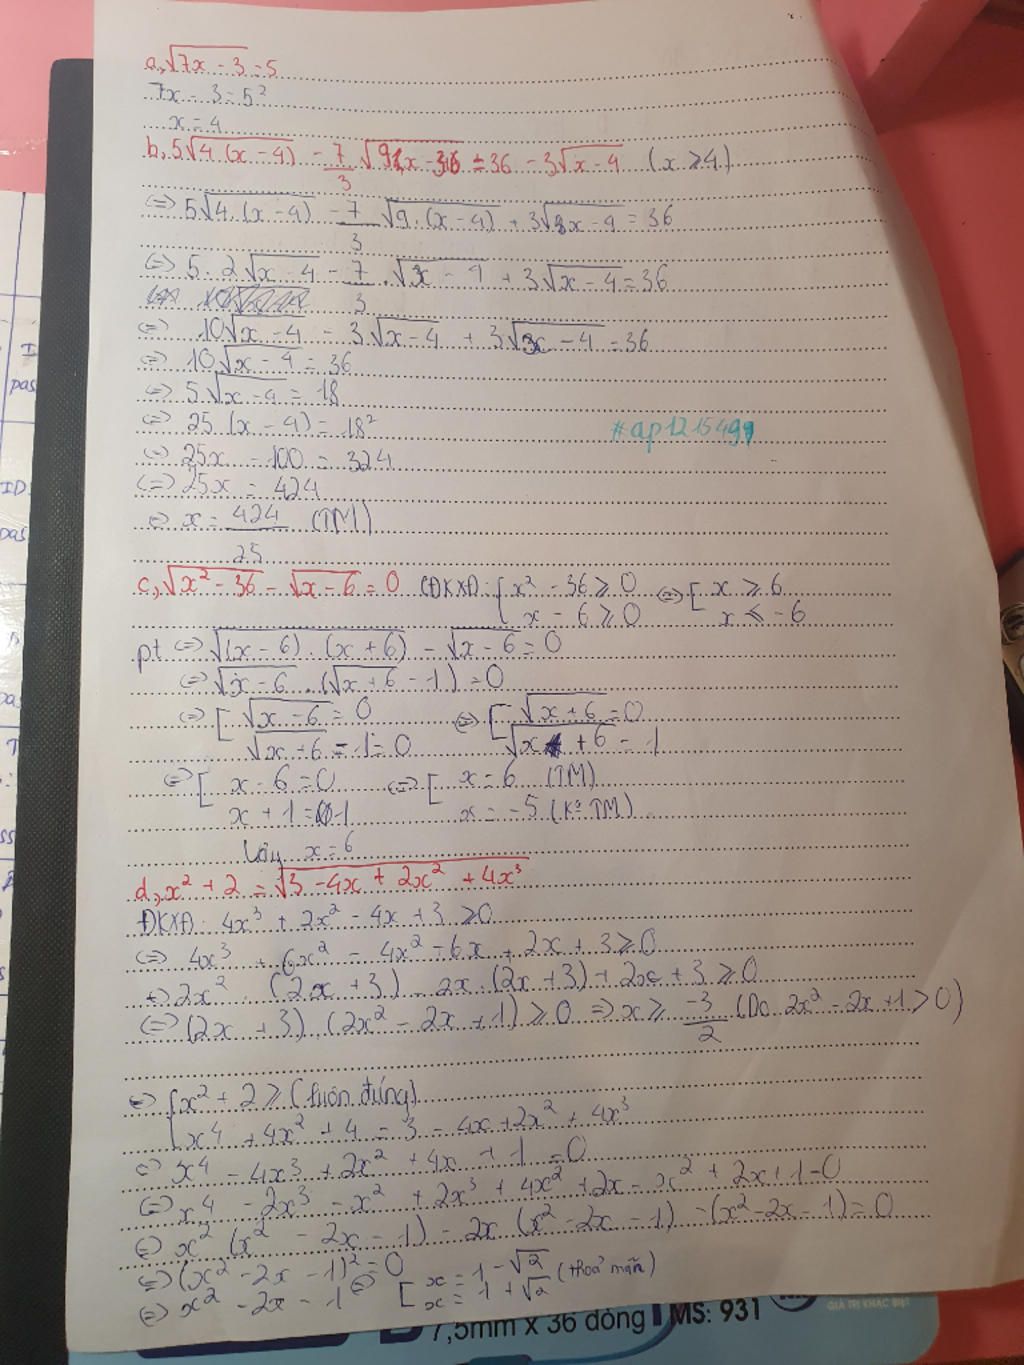 a, √7x - 3 = 5
7x - 3 = 5²
x = 4
b, 5√4.(x - 4) - 7/3 √9x - 36 = 36 - 3√x - 4 (x ≥ 4)
<=> 5√4.(x - 4) - 7/3 √9.(x - 4) + 3√x - 4 = 36
<=> 5.2√x - 4 - 7/3 . √x - 4 + 3√x - 4 = 36
<=> 10√x - 4 - 3√x - 4 + 3√x - 4 = 36
<=> 10√x - 4 = 36
<=> 5√x - 4 = 18
<=> 25 (x - 4) = 18²
#ap1215499
<=> 25x - 100 = 324
<=> 25x = 424
<=> x = 424/25 (TM)
c, √x² - 36 - √x - 6 = 0 (ĐKXĐ: { x² - 36 ≥ 0 <=> [ x ≥ 6
x - 6 ≥ 0 x ≤ -6
pt <=> √(x - 6).(x + 6) - √x - 6 = 0
<=> √x - 6 . (√x + 6 - 1) = 0
<=> [ √x - 6 = 0 <=> [ √x + 6 = 0
√x + 6 - 1 = 0 √x + 6 = 1
<=> [ x - 6 = 0 <=> [ x = 6 (TM)
x + 1 = 1 x = -5 (Ko TM)
Vậy x = 6
d, x² + 2 = √3 - 4x + 2x² + 4x³
ĐKXĐ: 4x³ + 2x² - 4x + 3 ≥ 0
<=> 4x³ + 6x² - 4x² - 6x + 2x + 3 ≥ 0
<=> 2x² . (2x + 3) - 2x.(2x + 3) + 2x + 3 ≥ 0
<=> (2x + 3).(2x² - 2x + 1) ≥ 0 => x ≥ -3/2 (Do 2x² - 2x + 1 > 0)
<=> { x² + 2 ≥ (luôn đúng)
x⁴ + 4x² + 4 = 3 - 4x + 2x² + 4x³
<=> x⁴ - 4x³ + 2x² + 4x + 1 = 0
<=> x⁴ - 2x³ - x² + 2x³ + 4x² + 2x - x² + 2x + 1 = 0
<=> x² (x² - 2x - 1) - 2x (x² - 2x - 1) - (x² - 2x - 1) = 0
<=> (x² - 2x - 1)² = 0
<=> x² - 2x - 1 <=> [ x = 1 - √2 (thoả mãn)
x = 1 + √2
7,5mm x 36 dòng MS: 931
GIÁ TRỊ KHÁC BIỆT